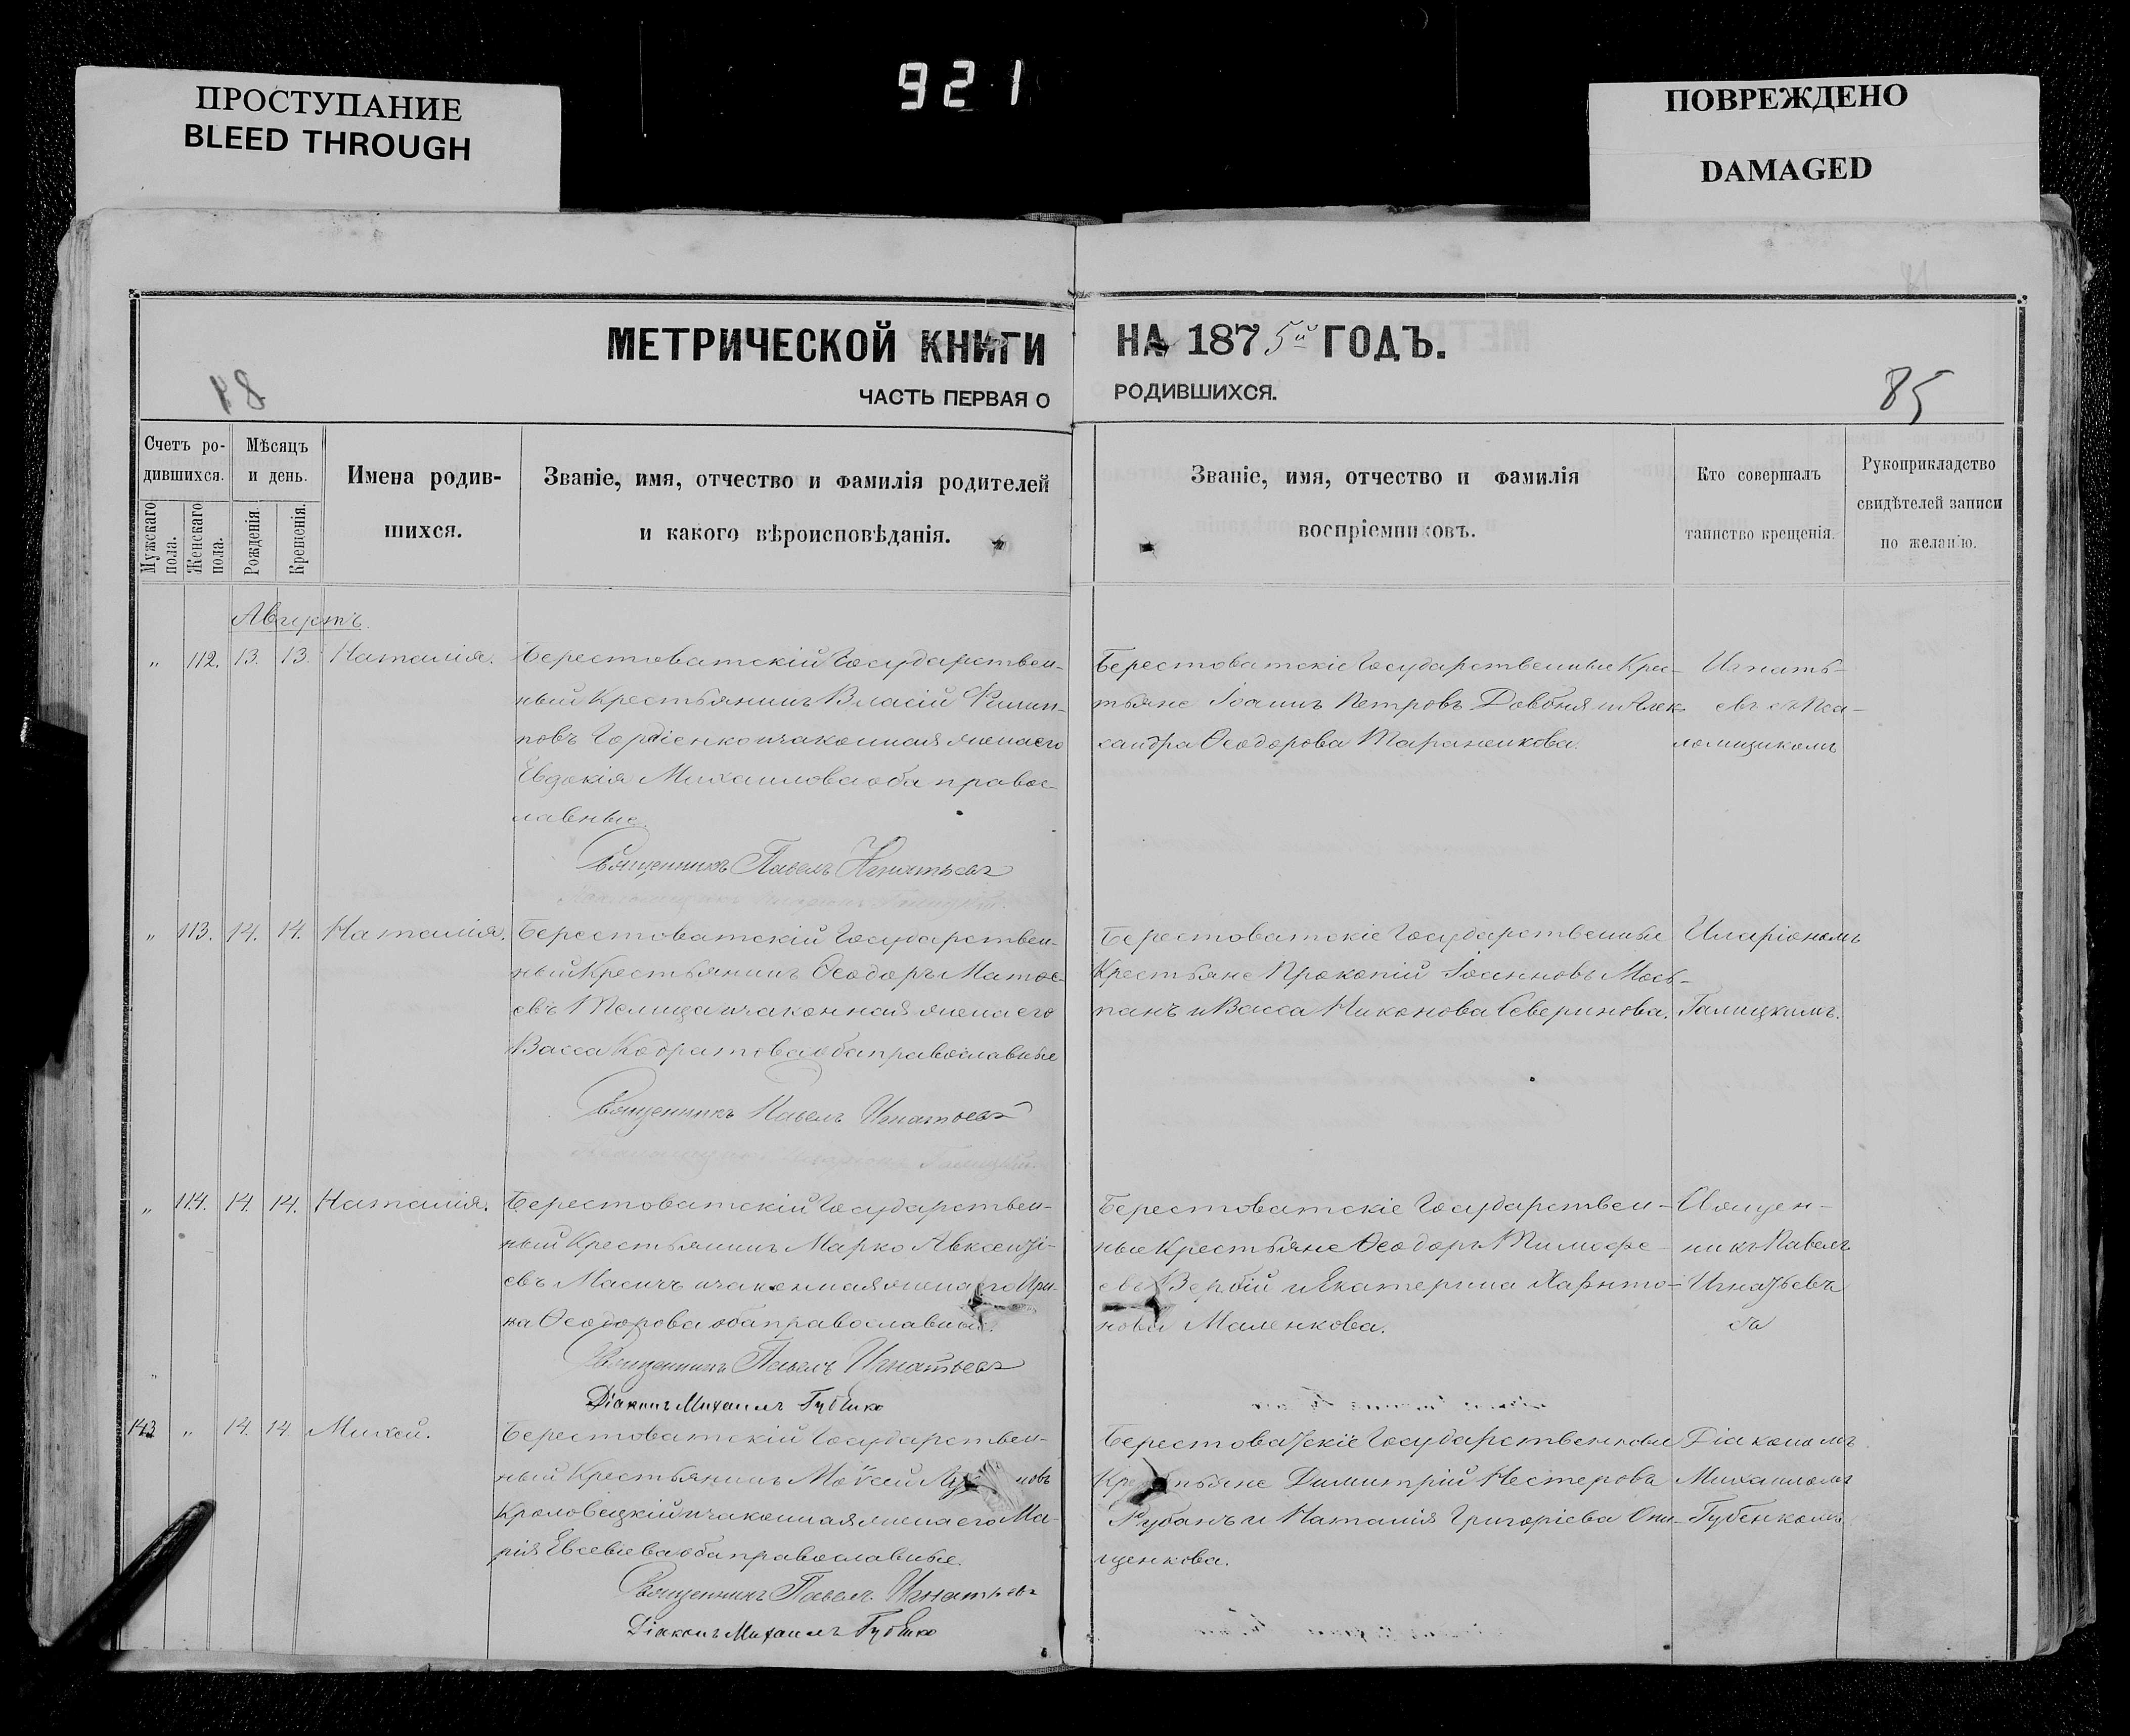 921
ПРОСТУПАНИЕ
BLEED THROUGH
ПОВРЕЖДЕНО
DAMAGED
МЕТРИЧЕСКОЙ КНИГИ
НА 1875й ГОДЪ.
ЧАСТЬ ПЕРВАЯ О
РОДИВШИХСЯ.
85
Счетъ ро-
дившихся.
Мужскаго пола.
Женскаго пола.
Мѣсяцъ
и день.
Рожденія.
Крещенія.
Имена родив-
шихся.
Званіе, имя, отчество и фамилія родителей
и какого вѣроисповѣданія.
Званіе, имя, отчество и фамилія
воспріемниковъ.
Кто совершалъ
таинство крещенія.
Рукоприкладство
свидѣтелей записи
по желанію.
Августъ.
„ 112. 13. 13. Наталія.
Берестоватскій Государствен-
ный Крестьянинъ Власій Филип-
повъ Гордіенко и законная жена его
Евдокія Михаилова оба правос-
лавные.
Священникъ Павелъ Игнатьевъ
Берестоватскіе Государственные Крес-
тьяне Іоаннъ Петровъ Довбня и Алек-
сандра Ѳеодорова Тараненкова.
Игнать-
евъ съ Пса-
ломщикомъ
„ 113. 14. 14. Наталія.
Берестоватскій Государствен-
ный Крестьянинъ Ѳеодоръ Матѳе-
евъ и законная жена его
Васса Кодратова оба православные
Священникъ Павелъ Игнатьевъ
Берестоватскіе Государственные
Крестьяне Прокопій Іоанновъ Мось-
панъ и Васса Никонова Северинова.
Иларіономъ
Галицкимъ.
„ 114. 14. 14. Наталія.
Берестоватскій Государствен-
ный Крестьянинъ Марко Авксенті-
евъ Масичъ и законная жена его Ири-
на Ѳеодорова оба православные.
Священникъ Павелъ Игнатьевъ
Діаконъ Михаилъ Губенко
Берестоватскіе Государствен-
ные Крестьяне Ѳеодоръ Тимоѳе-
евъ Вербій и Екатерина Харито-
нова Маленкова.
Священ-
никъ Павелъ
Игнатьевъ
съ
143 „ 14. 14. Михей.
Берестоватскій Государствен-
ный Крестьянинъ Моѵсей
Кроловецкій и законная жена его Ма-
рія Евсевіева оба православные.
Священникъ Павелъ Игнатьевъ
Діаконъ Михаилъ Губенко
Берестоватскіе Государственные
Крестьяне Димитрій Нестеровъ
Рубанъ и Наталія Григоріева Они-
щенкова.
Діакономъ
Михаиломъ
Губенкомъ